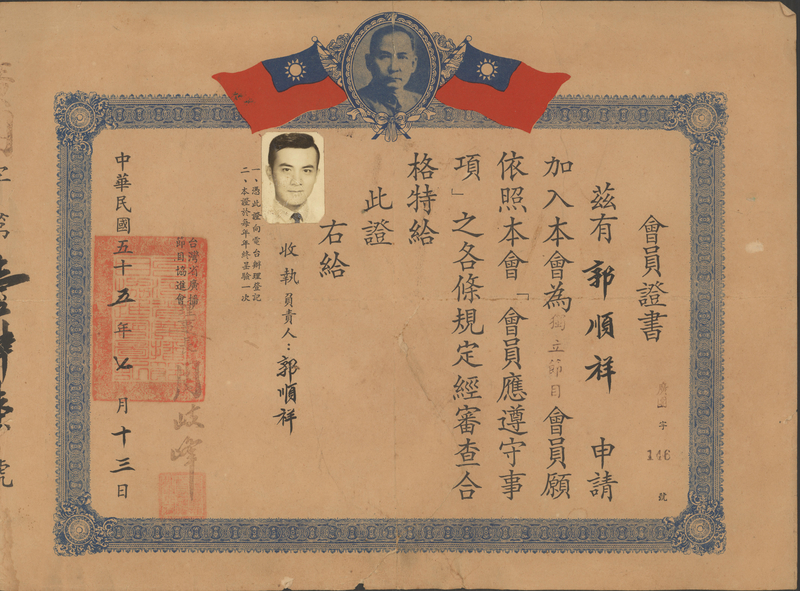 會員證書
字
146
號
茲有 郭順祥 申請
加入本會為獨立節目會員願
依照本會「會員應遵守事
項」之各條規定經審查合
格特給
此證
右給
收執
員責人：郭順祥
一、憑此證向電台辦理登記
二、本證於每年年終呈驗一次
台灣省廣播
節目協進會
周岐峰
中華民國五十五年七月十三日
字第
號